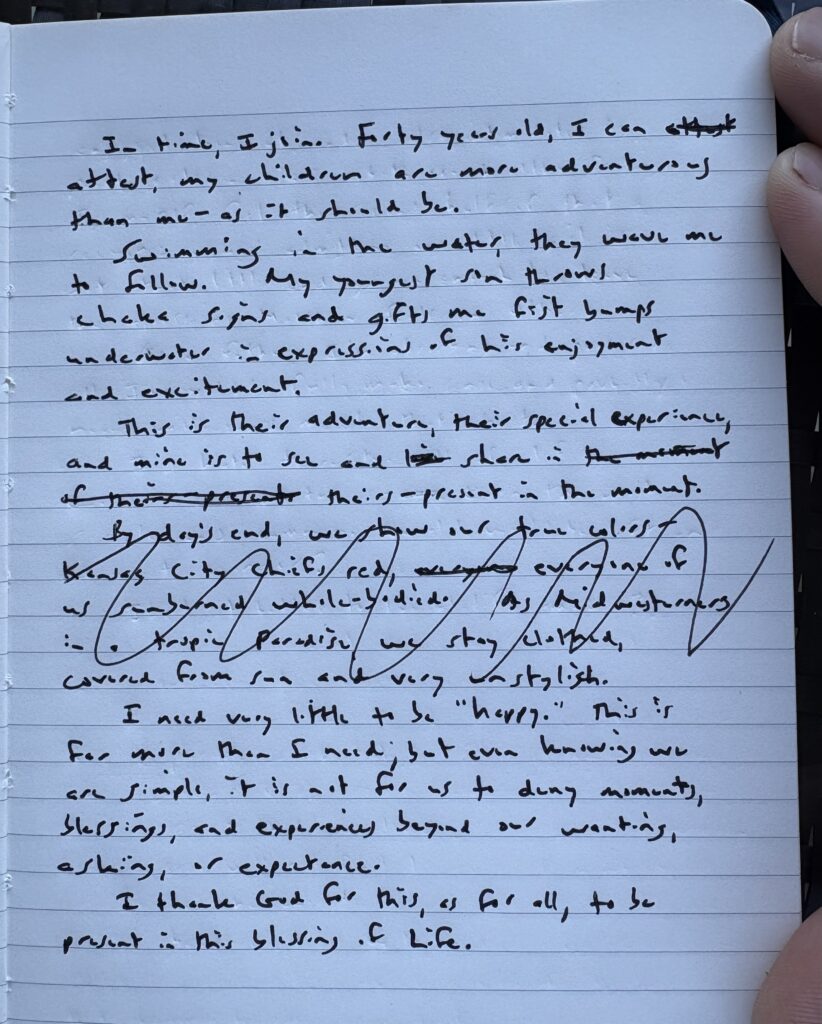 In time, I join. Forty years old, I can attest
attest, my children are more adventurous
than me - as it should be.
Swimming in the water, they wave me
to follow. My youngest son throws
chaka signs and gifts me fist bumps
underwater in expression of his enjoyment
and excitement.
This is their adventure, their special experience,
and mine is to see and share in the moment
of their present theirs - present in the moment.
By day's end, we show our true colors -
Kansas City Chiefs red, everyone of
us sunburned white-bodied. As Midwesterners
in a tropic paradise, we stay clothed,
covered from sun and very unstylish.
I need very little to be "happy." This is
far more than I need; but even knowing we
are simple, it is not for us to deny moments,
blessings, and experiences beyond our wanting,
asking, or expectance.
I thank God for this, as for all, to be
present in this blessing of Life.